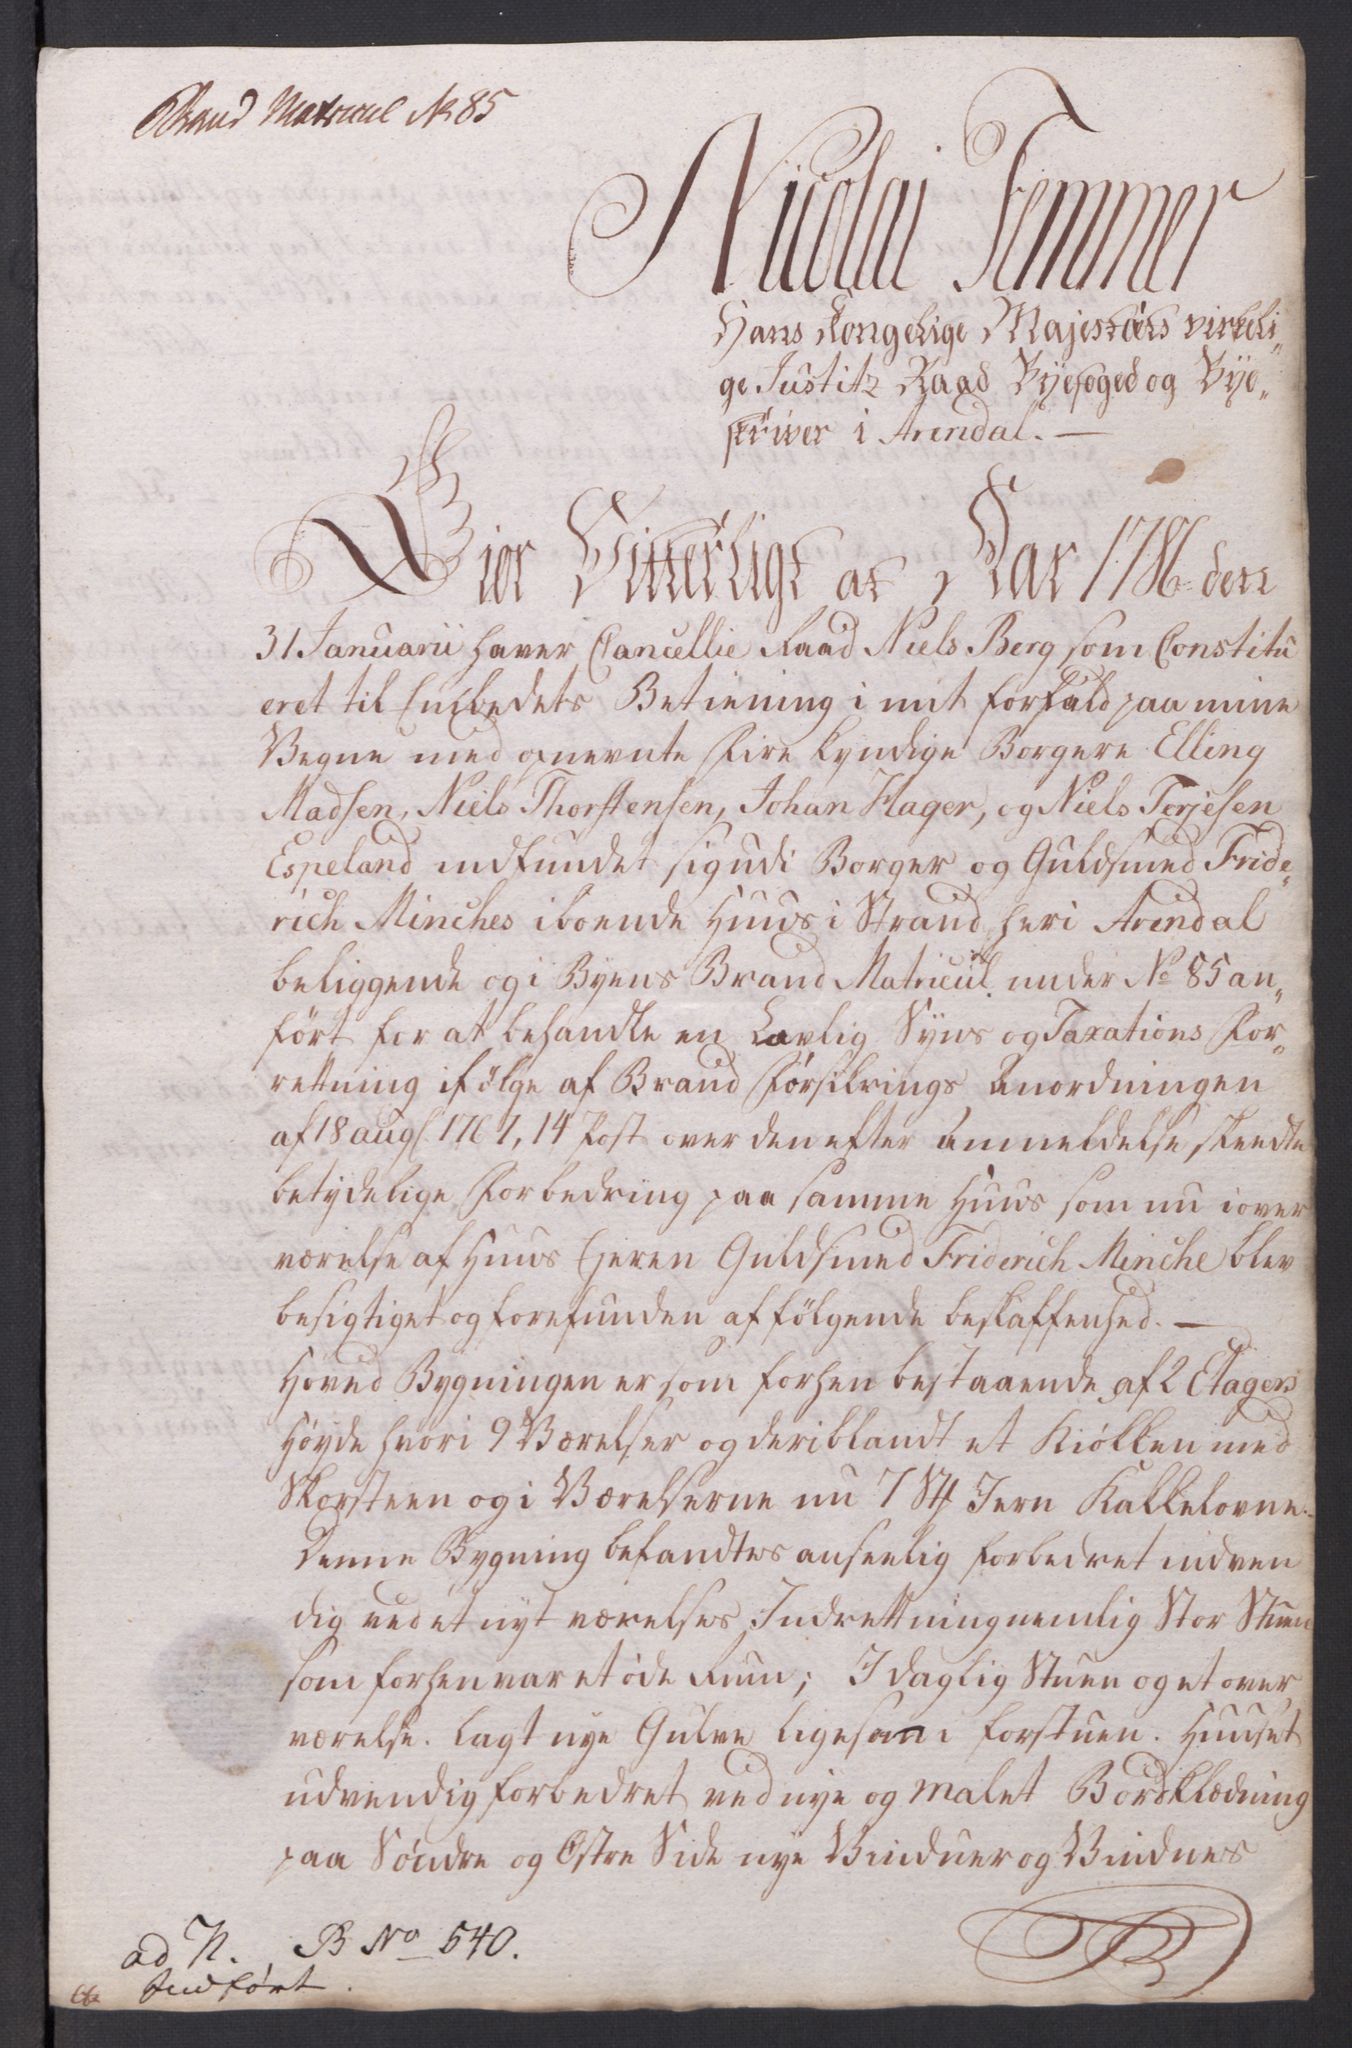 Brand Matricul No 85
Nicolai Femmer
Hans Kongelige Majestæts virkeli¬
ge Justitz Raad Byefoged og Bye¬
skriver i Arendal. —
Giør Vitterligt at Aar 1786 den
31 Januarii haver Cancellie Raad Niels Berg som Constitu
eret til Embedets Betiening i mit forfald paa mine
Vegne med opnevnte Fire kyndige Borgere Elling
Madsen, Niels Thorstensen, Johan Hager, og Niels Terjesen
Espeland indfundet sig udi Borger og Guldsmed Fride¬
rich Minches iboende Huus i Strand heri Arendal
beliggende og i Byens Brand Matricul under No 85 an¬
ført for at behandle en Lovlig Syns og Taxations For¬
rettning ifølge af Brand Forsikrings Anordningen
af 18 augl 1767, 14 Post over den efter Anmeldelse skeedte
betydelige Forbedring paa samme Huus som nu i over
værelse af Huus Ejeren Guldsmed Friderich Minche blev
besigtiget og forefunden af følgende beskaffenhed. —
Hoved Bygningen er som forhen bestaaende af 2 Etagers
Høyde hvori 9 Værelser og deriblandt et Kiøkken med
Skorsteen og i Værelserne nu 7 Stk Jern Kakkelovne.
Denne Bygning befandtes anseelig forbedret indven
dig ved et nyt værelses Indrettning nemlig Stor Stuen
som forhen var et øde Rum; I daglig Stuen og et over
værelse. lagt nye Gulve ligesom i forstuen. Huuset
udvendig forbedret ved nye og malet Bordklædning
paa Søndre og Østre Side nye Vinduer og Vindues
ad N. B No 540.
Indført.